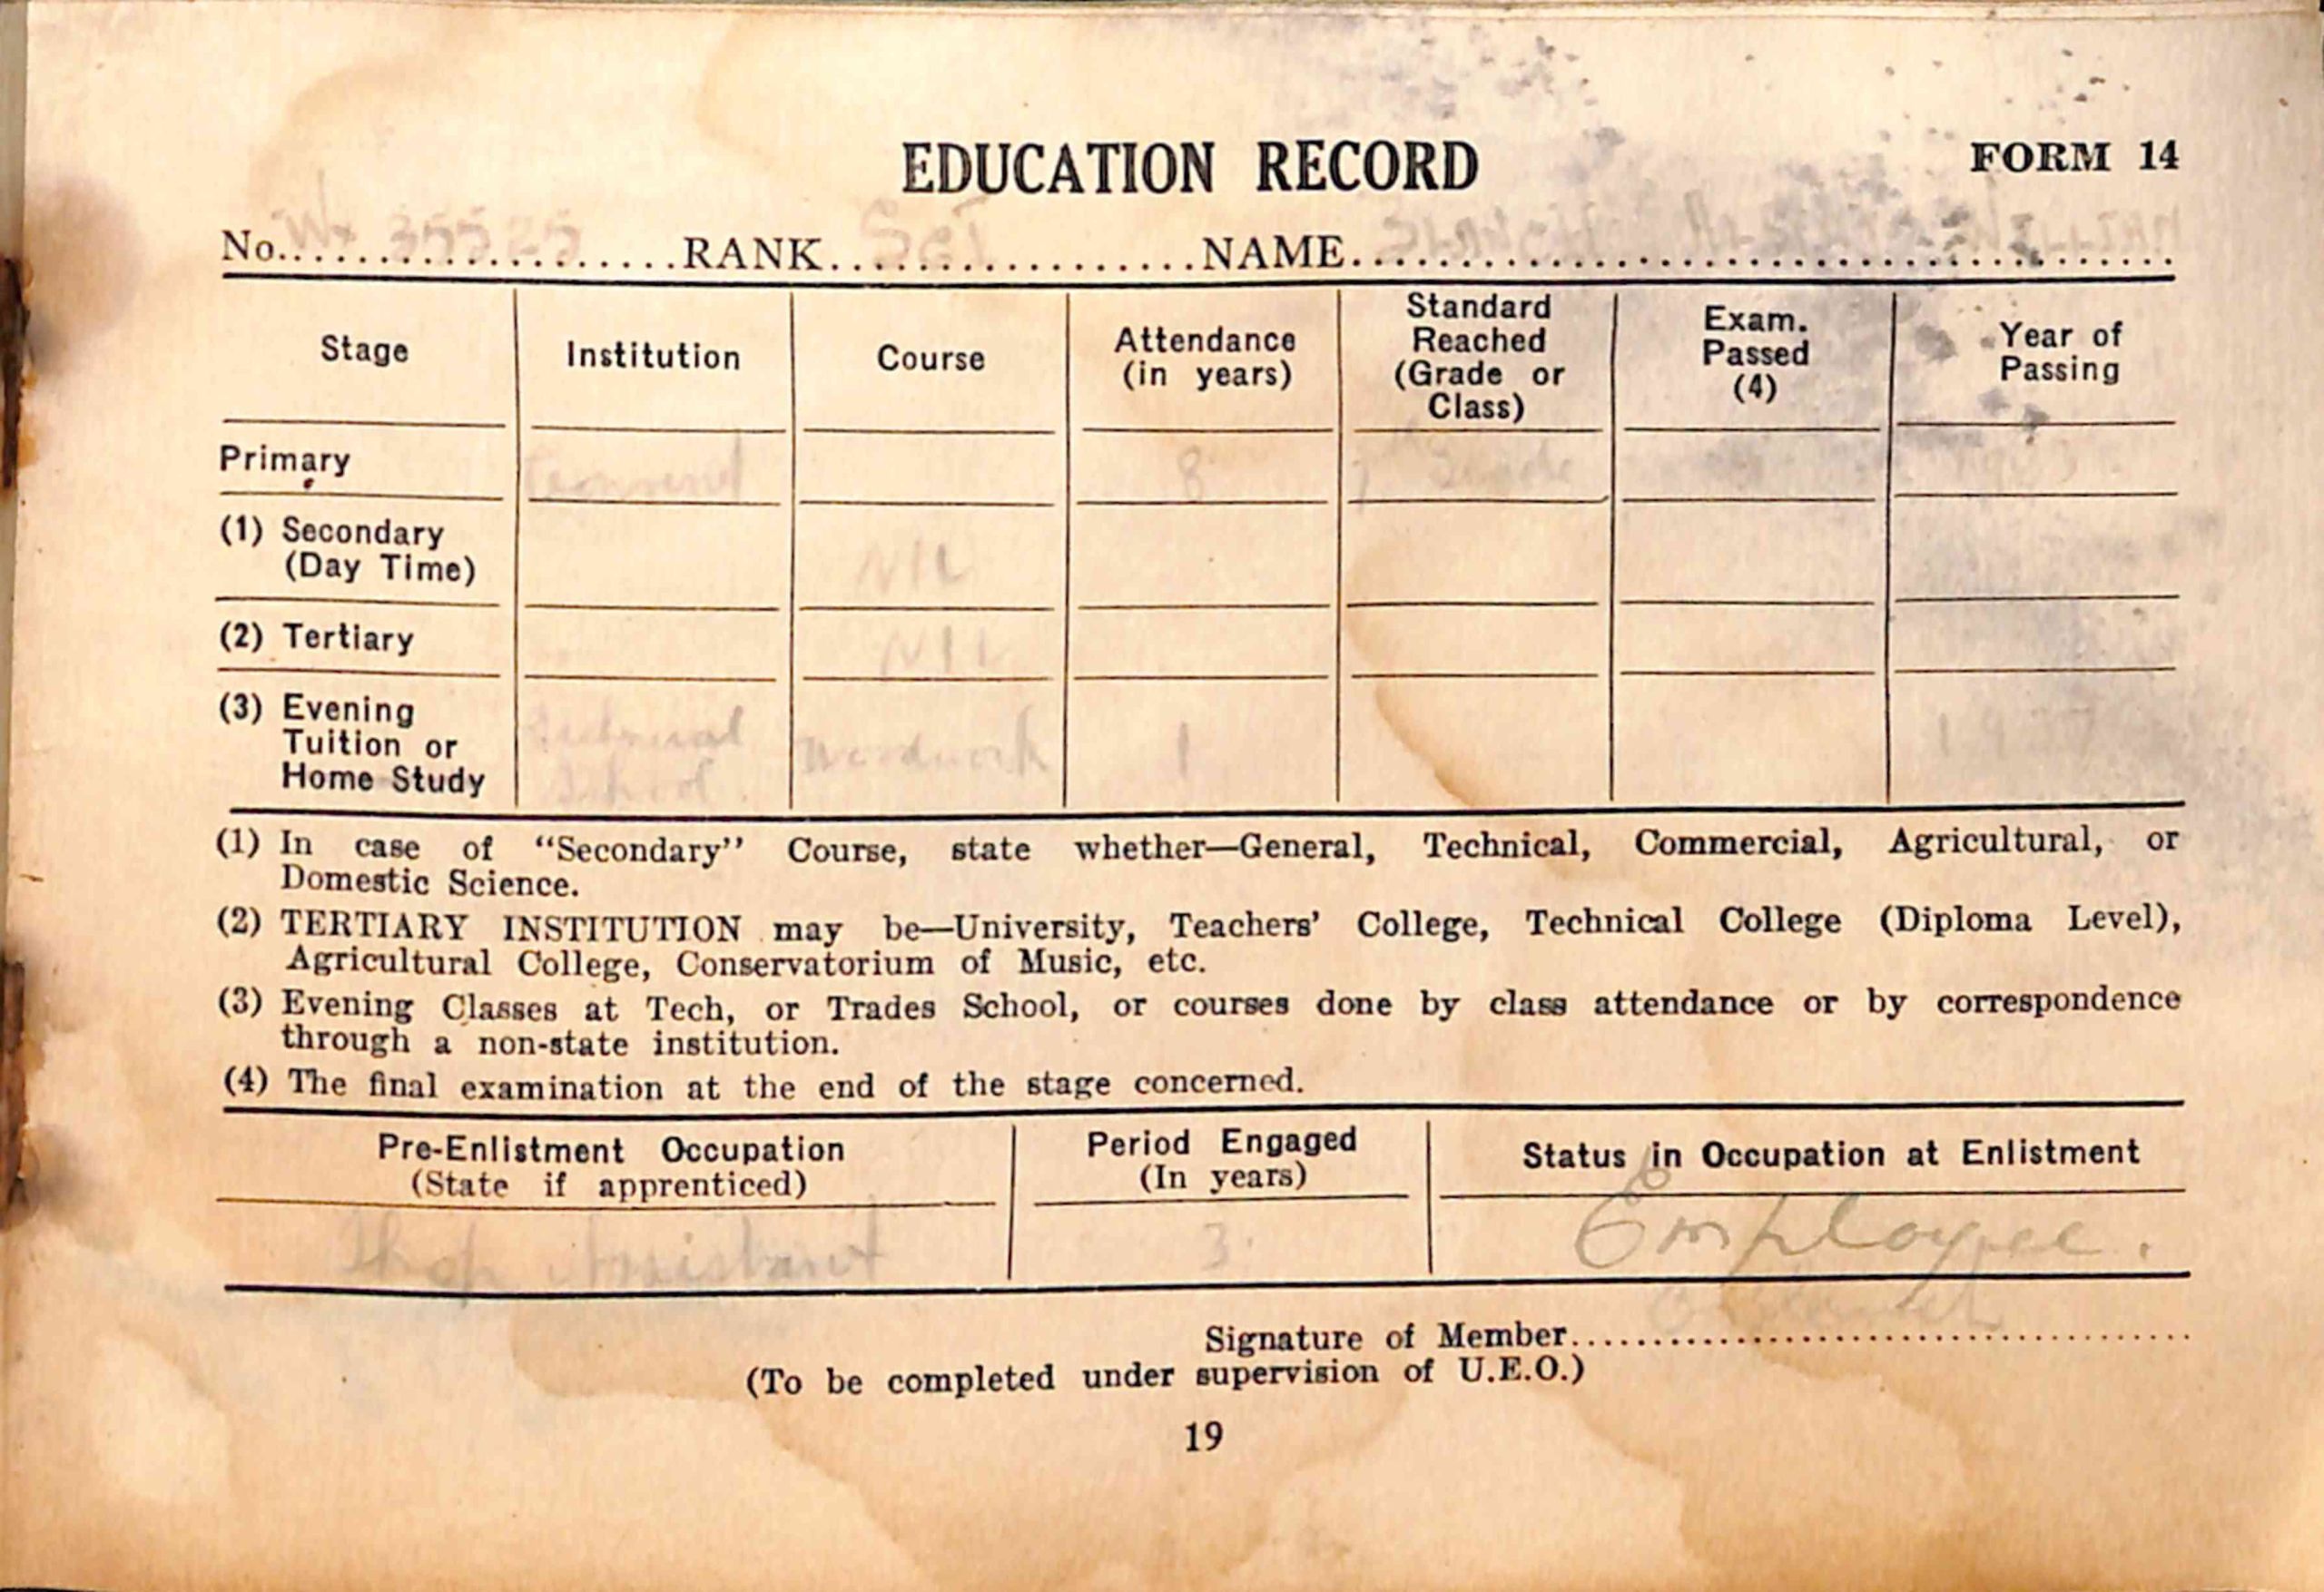 EDUCATION RECORD
FORM 14
No.....................RANK...................NAME..........................................
Stage
Institution
Course
Attendance
(in years)
Standard
Reached
(Grade or
Class)
Exam.
Passed
(4)
Year of
Passing
Primary
8
Grade
(1) Secondary
(Day Time)
NIL
(2) Tertiary
NIL
(3) Evening
Tuition or
Home Study
Technical
School.
Woodwork
1
(1) In case of “Secondary” Course, state whether—General, Technical, Commercial, Agricultural, or
Domestic Science.
(2) TERTIARY INSTITUTION may be—University, Teachers’ College, Technical College (Diploma Level),
Agricultural College, Conservatorium of Music, etc.
(3) Evening Classes at Tech, or Trades School, or courses done by class attendance or by correspondence
through a non-state institution.
(4) The final examination at the end of the stage concerned.
Pre-Enlistment Occupation
(State if apprenticed)
Period Engaged
(In years)
Status in Occupation at Enlistment
Shop Assistant
3
Employee.
Signature of Member.......................................
(To be completed under supervision of U.E.O.)
19